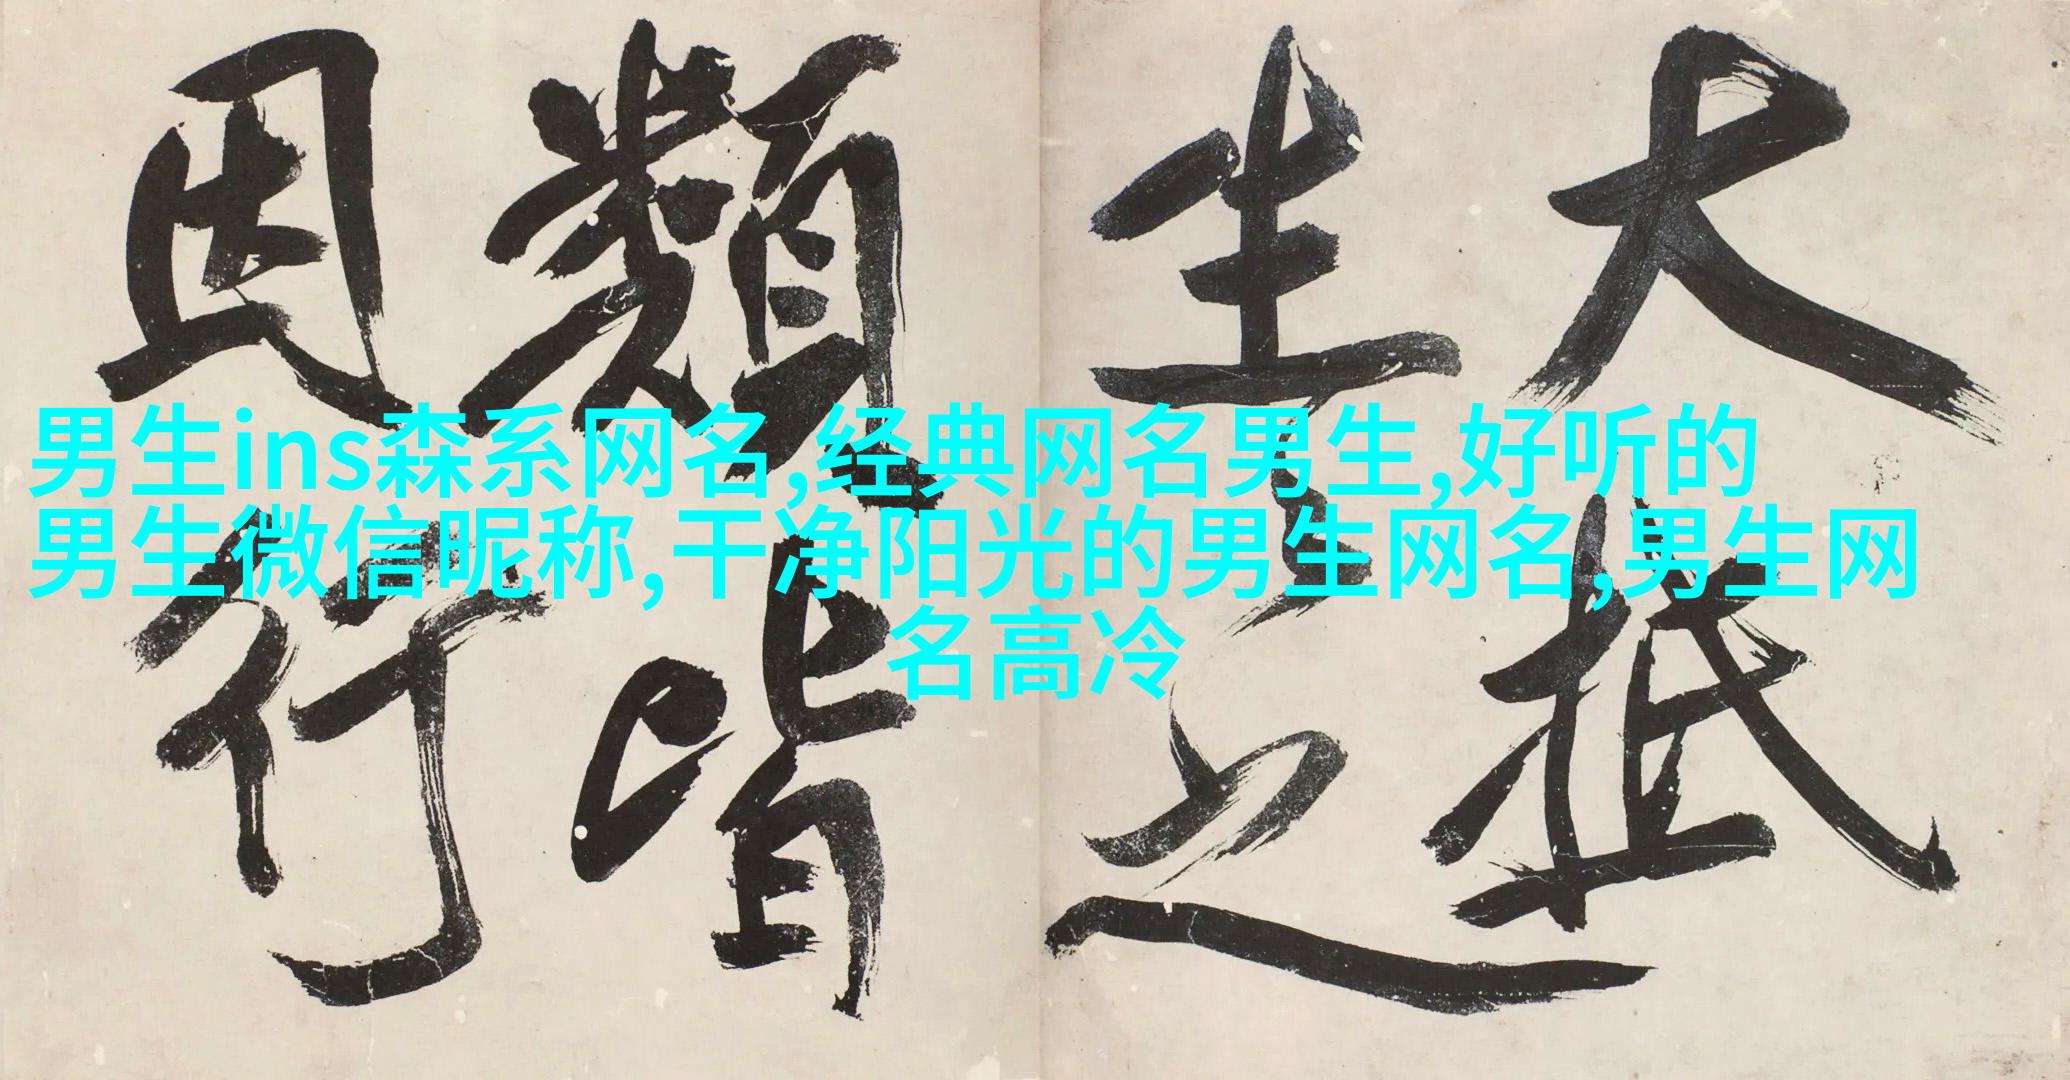 大抵
生之
類皆
因行
男生ins森系网名,经典网名男生,好听的
男生微信昵称,干净阳光的男生网名,男生网
名高冷